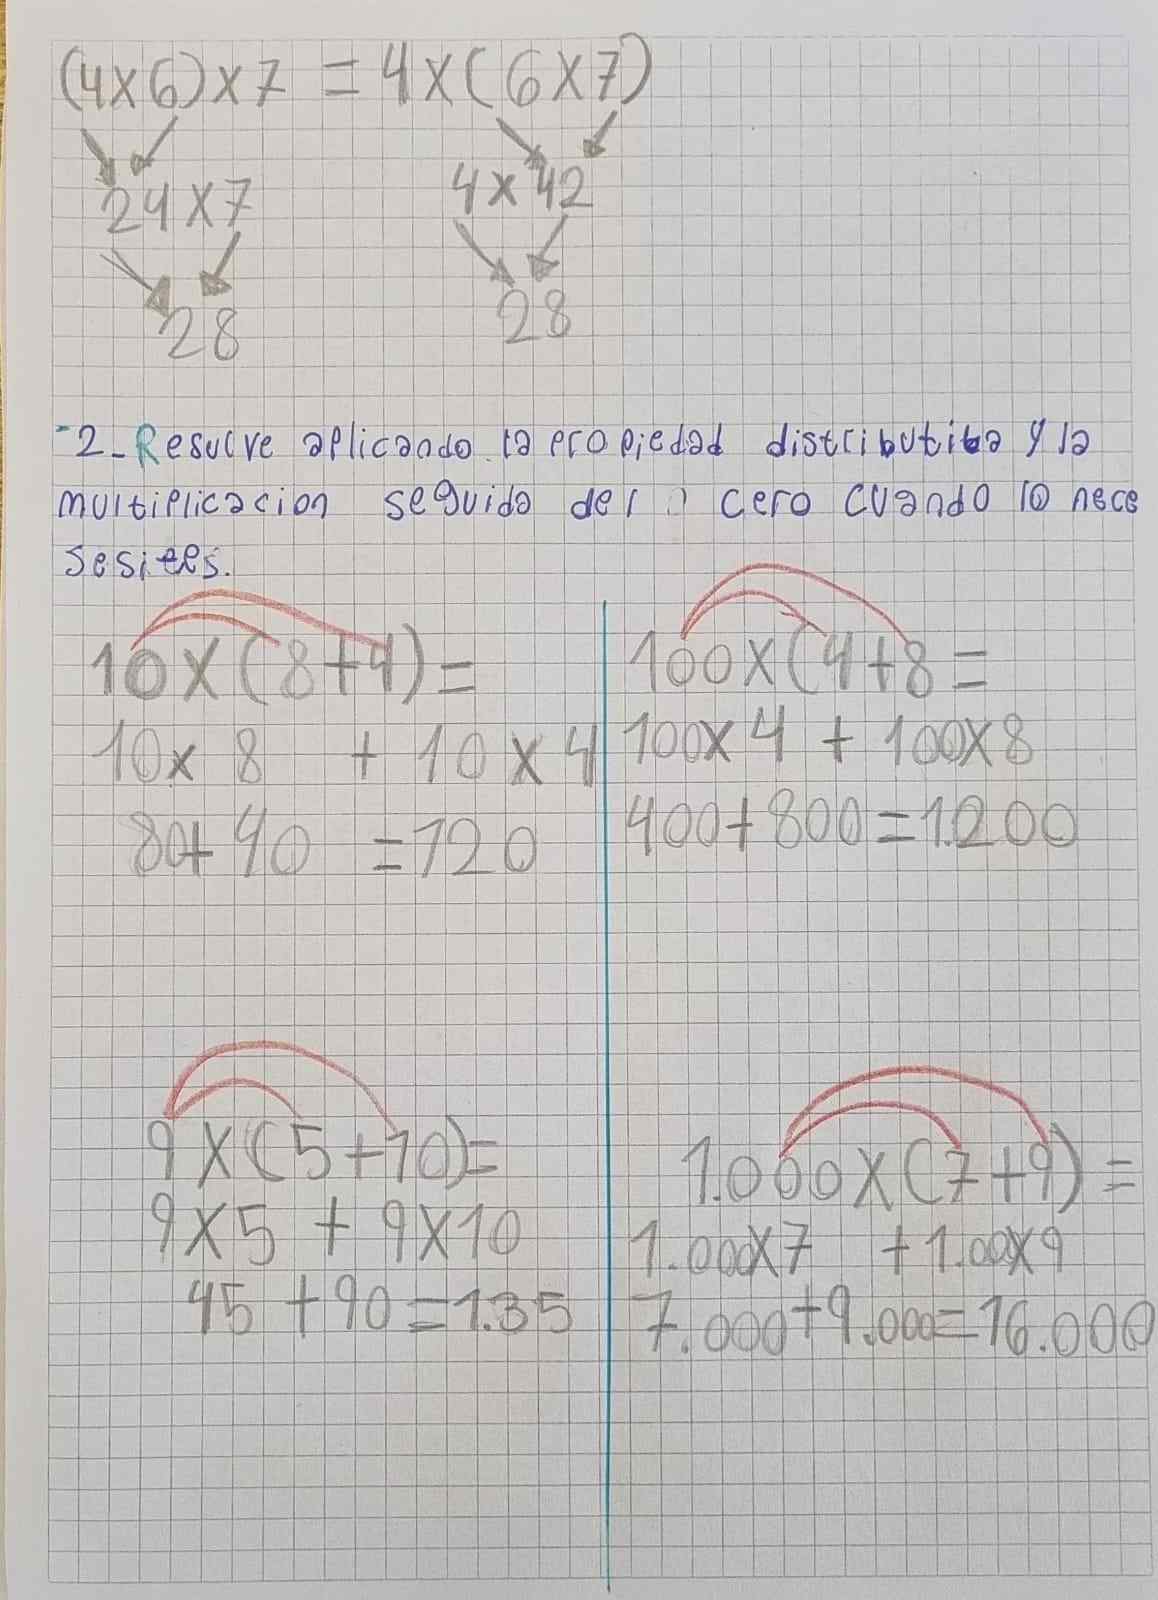 (4x6)x7 = 4x(6x7)
24x7 4x42
28 28
-2-Resuelve aplicando la propiedad distributiba y la
multiplicacion seguida del cero cuando lo nece
sesiees.
10x(8+4)=
10x 8 + 10x4
80+40 =120
100x(4+8=
100x4 + 100x8
400+800=1.200
9x(5+10)=
9x5 + 9x10
45 +90=1.35
1.000x(7+9)=
1.000x7 +1.00x9
7.000+9.000=16.000